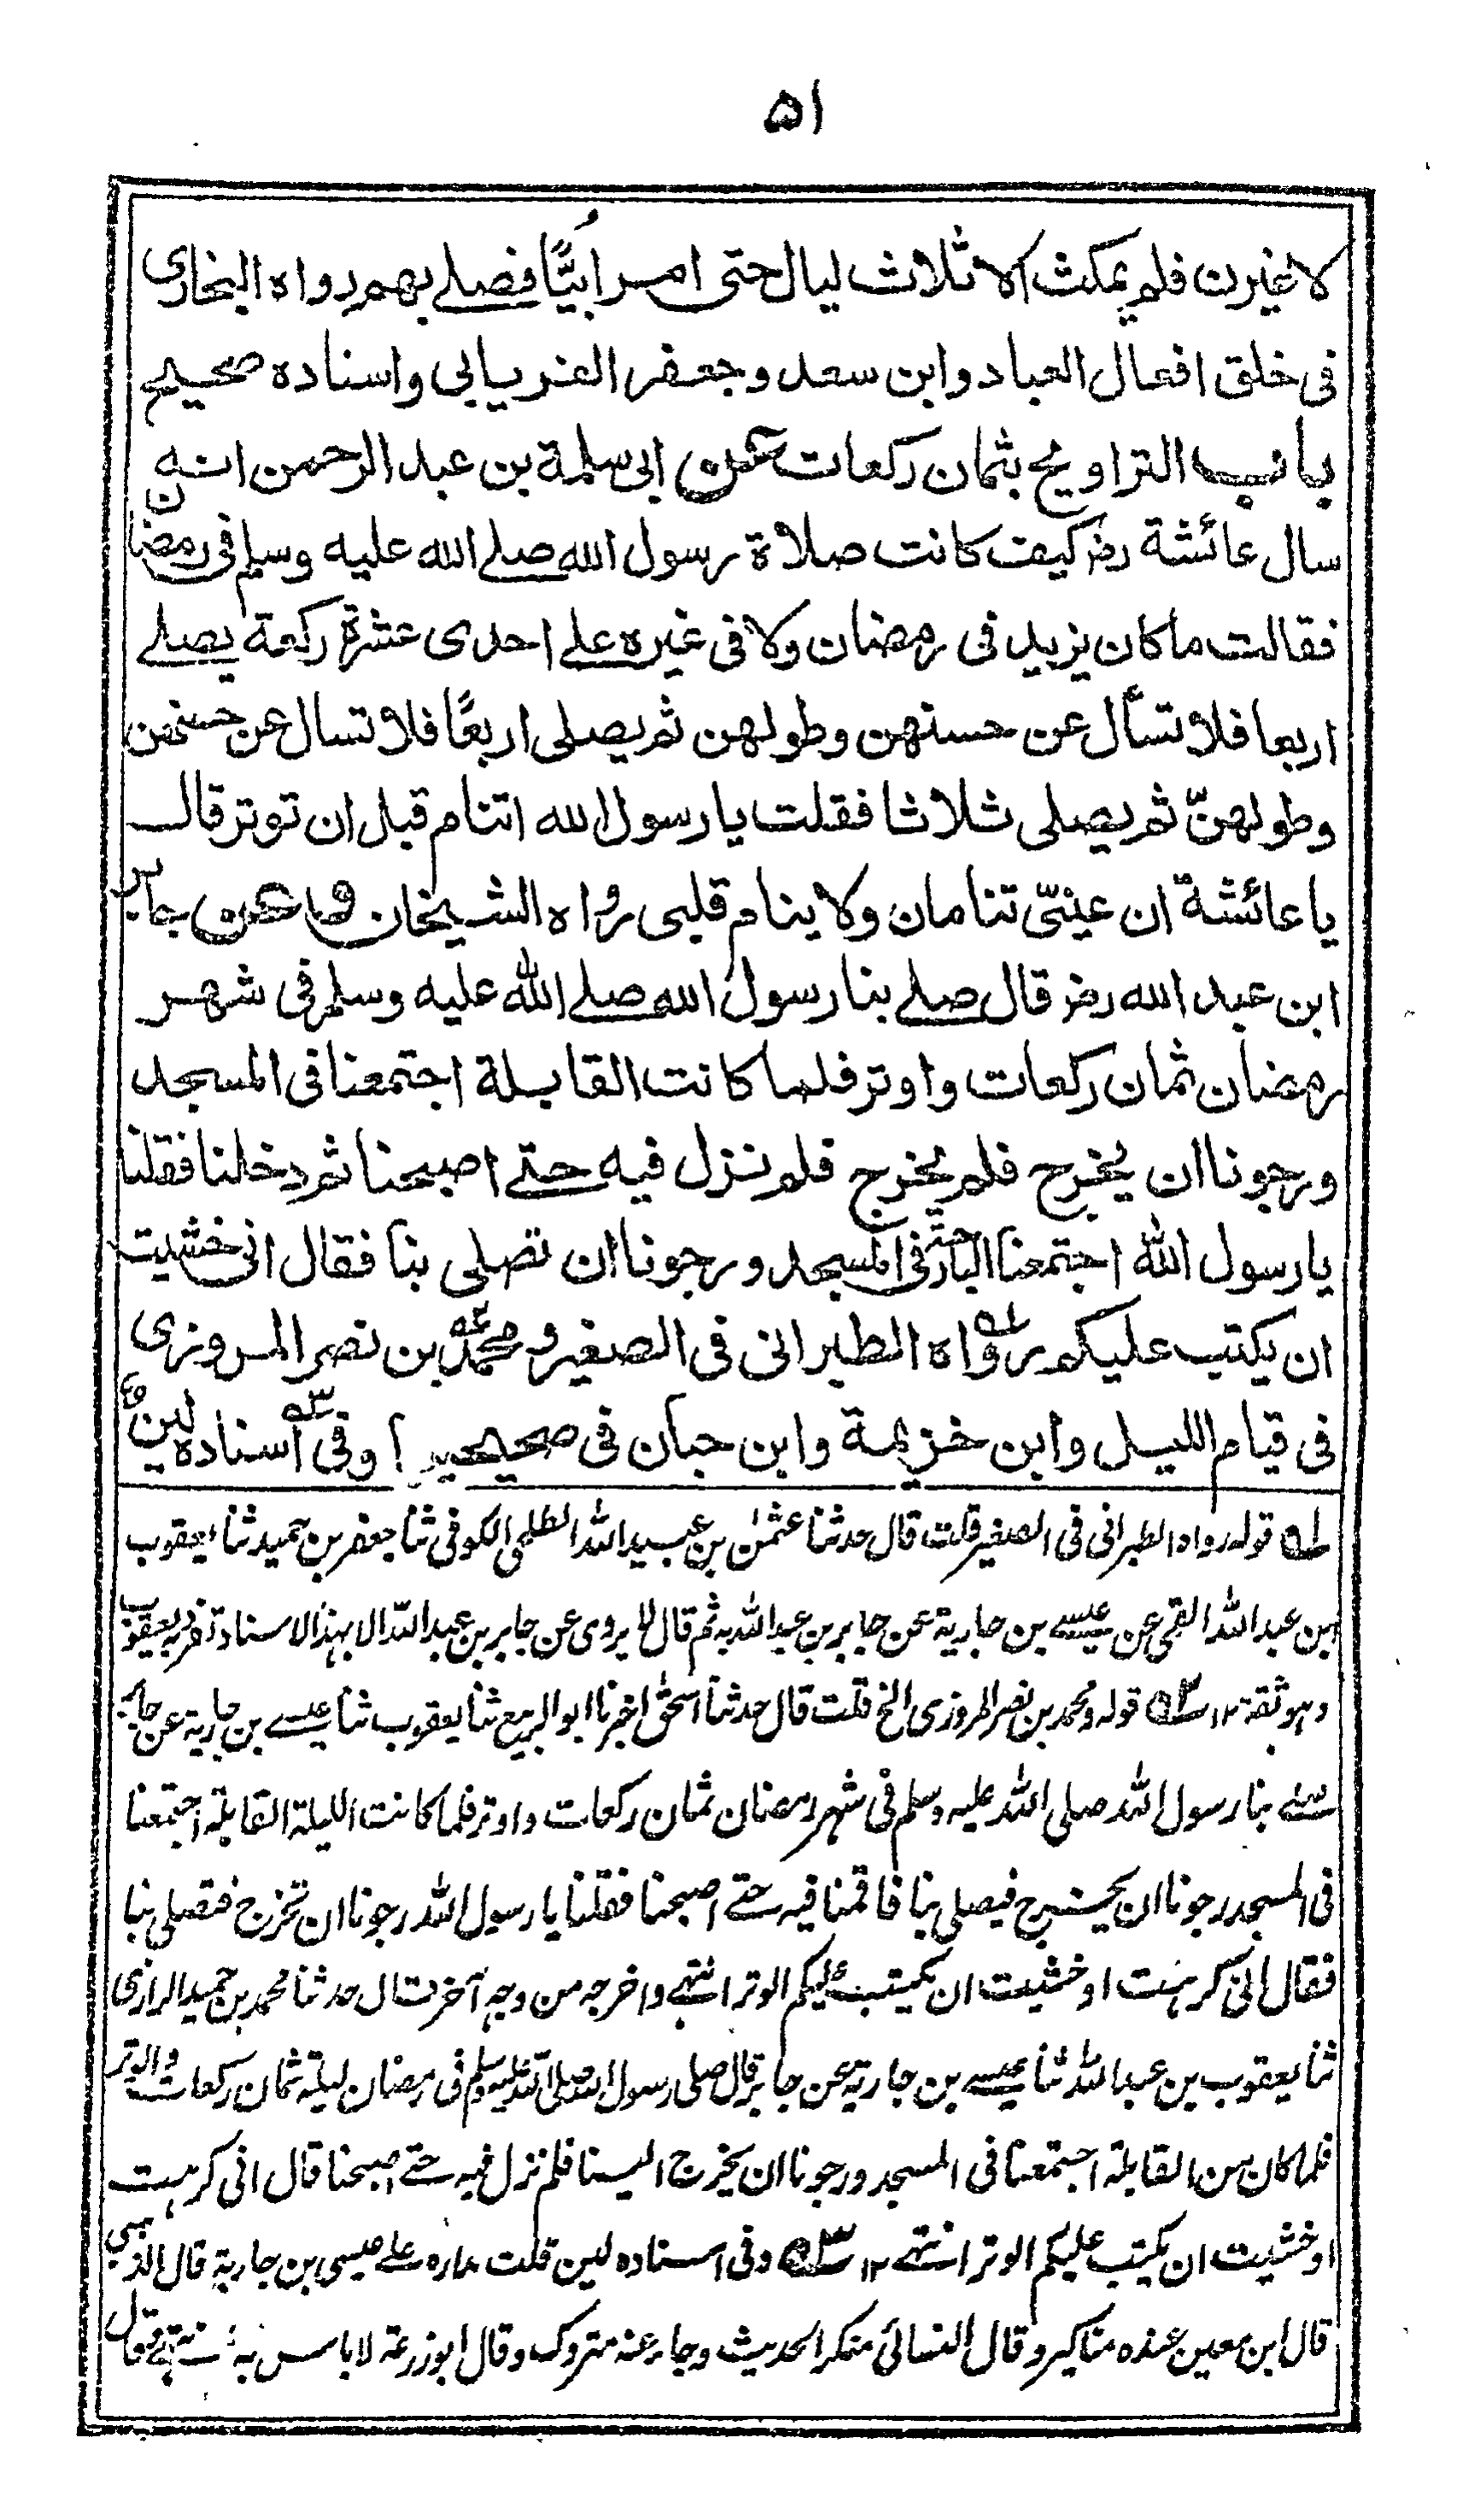 ۵۱
لاغیرن فلم یمکث الا ثلاث لیال حتی امر ابیًّا فصلے بھم رواہ البخاری
فی خلق افعال العباد وابن سعد وجعفر الفریابی واسنادہ صحیح
باب التراویح بثمان رکعات عن ابی سلمۃ بن عبد الرحمن انہ
سال عائشۃ رضہ کیف کانت صلاۃ رسول اللہ صلے اللہ علیہ وسلم فی رمضان
فقالت ماکان یزید فی رمضان ولا فی غیرہ علے احدی عشرۃ رکعۃ یصلے
اربعا فلا تسأل عن حسنھن وطولھن ثم یصلی اربعًا فلا تسال عن حسنھن
وطولھنّ ثم یصلی ثلاثا فقلت یا رسول اللہ اتنام قبل ان توتر قال
یا عائشۃ ان عینیّ تنامان ولا ینام قلبی رواہ الشیخان وعن جابر
ابن عبد اللہ رضہ قال صلے بنا رسول اللہ صلے اللہ علیہ وسلم فی شھر
رمضان ثمان رکعات واوتر فلما کانت القابلۃ اجتمعنا فی المسجد
ورجونا ان یخرج فلم یخرج فلم نزل فیہ حتے اصبحنا ثم دخلنا فقلنا
یا رسول اللہ اجتمعنا البارحۃ فی المسجد ورجونا ان تصلی بنا فقال انی خشیت
ان یکتب علیکم رواہ الطبرانی فی الصغیر ومحمد بن نصر المروزی
فی قیام اللیل وابن خزیمۃ وابن حبان فی صحیحیھما وفی اسنادہ لین
لہ قولہ رواہ الطبرانی فی الصغیر قلت قال حدثنا عثمٰن بن عبید اللہ الطلحی الکوفی ثنا جعفر بن حمید ثنا یعقوب
بن عبد اللہ القمی عن عیسے بن جاریۃ عن جابر بن عبد اللہ بہ ثم قال لا یروی عن جابر بن عبد اللہ الا بہذا الاسناد تفرد بہ یعقوب
وہو ثقۃ ۱۲ ۲ہ قولہ ومحمد بن نصر المروزی الخ قلت قال حدثنا اسحٰق اخبرنا ابو الربیع ثنا یعقوب ثنا عیسے بن جاریۃ عن جابر
صلے بنا رسول اللہ صلی اللہ علیہ وسلم فی شہر رمضان ثمان رکعات واوتر فلما کانت اللیلۃ القابلۃ اجتمعنا
فی المسجد رجونا ان یخرج فیصلی بنا فاقمنا فیہ حتے اصبحنا فقلنا یا رسول اللہ رجونا ان تخرج فتصلی بنا
فقال انی کرہت او خشیت ان یکتب علیکم الوتر انتہے واخرجہ من وجہ آخر قال حدثنا محمد بن حمید الرازی
ثنا یعقوب بن عبد اللہ ثنا عیسے بن جاریۃ عن جابر قال صلی رسول اللہ صلی اللہ علیہ وسلم فی رمضان لیلۃ ثمان رکعات والوتر
فلما کان من القابلۃ اجتمعنا فی المسجد ورجونا ان یخرج الینا فلم نزل فیہ حتے اصبحنا قال انی کرہت
او خشیت ان یکتب علیکم الوتر انتہے ۱۲ ۳ہ وفی اسنادہ لین قلت مدارہ علے عیسی بن جاریۃ قال الذہبی
قال ابن معین عندہ مناکیر وقال النسائی منکر الحدیث وجاء عنہ متروک وقال ابو زرعۃ لا باس بہ انتہے وقال